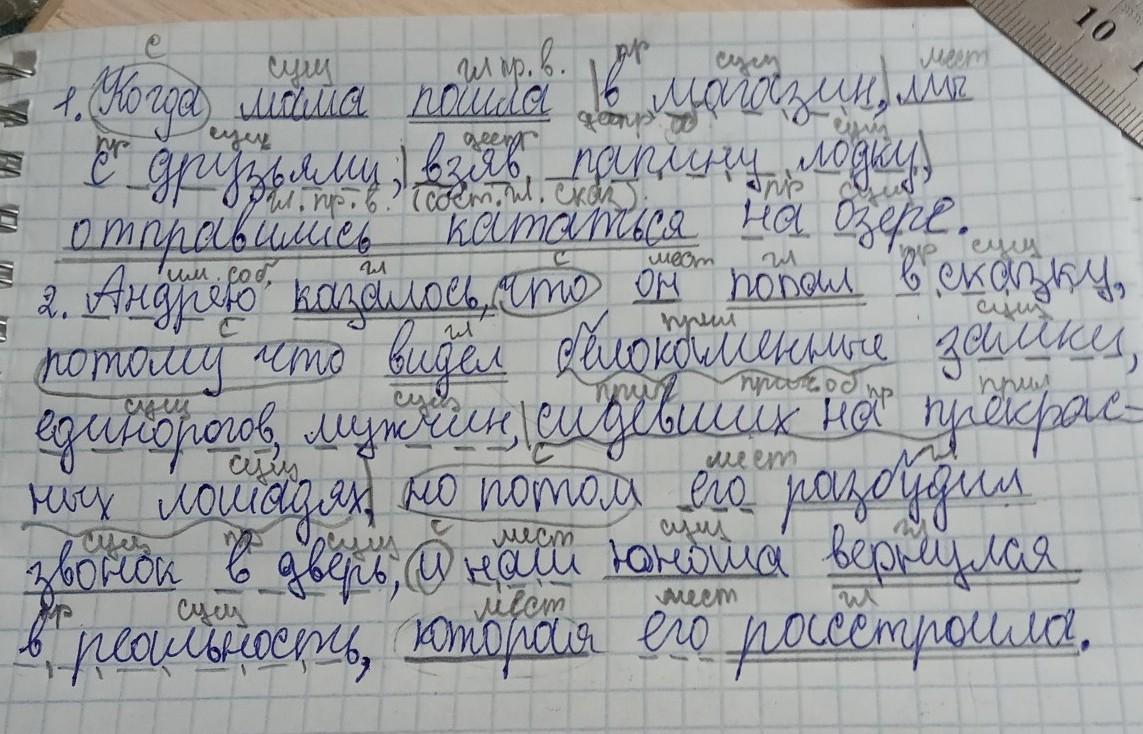 с
сущ гл пр. в. пр сущ мест
1. Когда мама пошла в магазин, мы
пр сущ деепр сущ
с друзьями, взяв папину лодку,
гл. пр. в. (сост. гл. сказ) пр сущ
отправились кататься на озере.
им. соб. гл с мест гл пр сущ
2. Андрею казалось, что он попал в сказку,
с гл прил сущ
потому что видел белокаменные замки,
сущ сущ прич прич. об пр прил
единорогов, мужчин, сидевших на прекрас-
сущ с мест гл
ных лошадях, но потом его разбудил
сущ пр сущ с мест сущ гл
звонок в дверь, и наш юноша вернулся
пр сущ мест мест гл
в реальность, которая его расстроила.
10